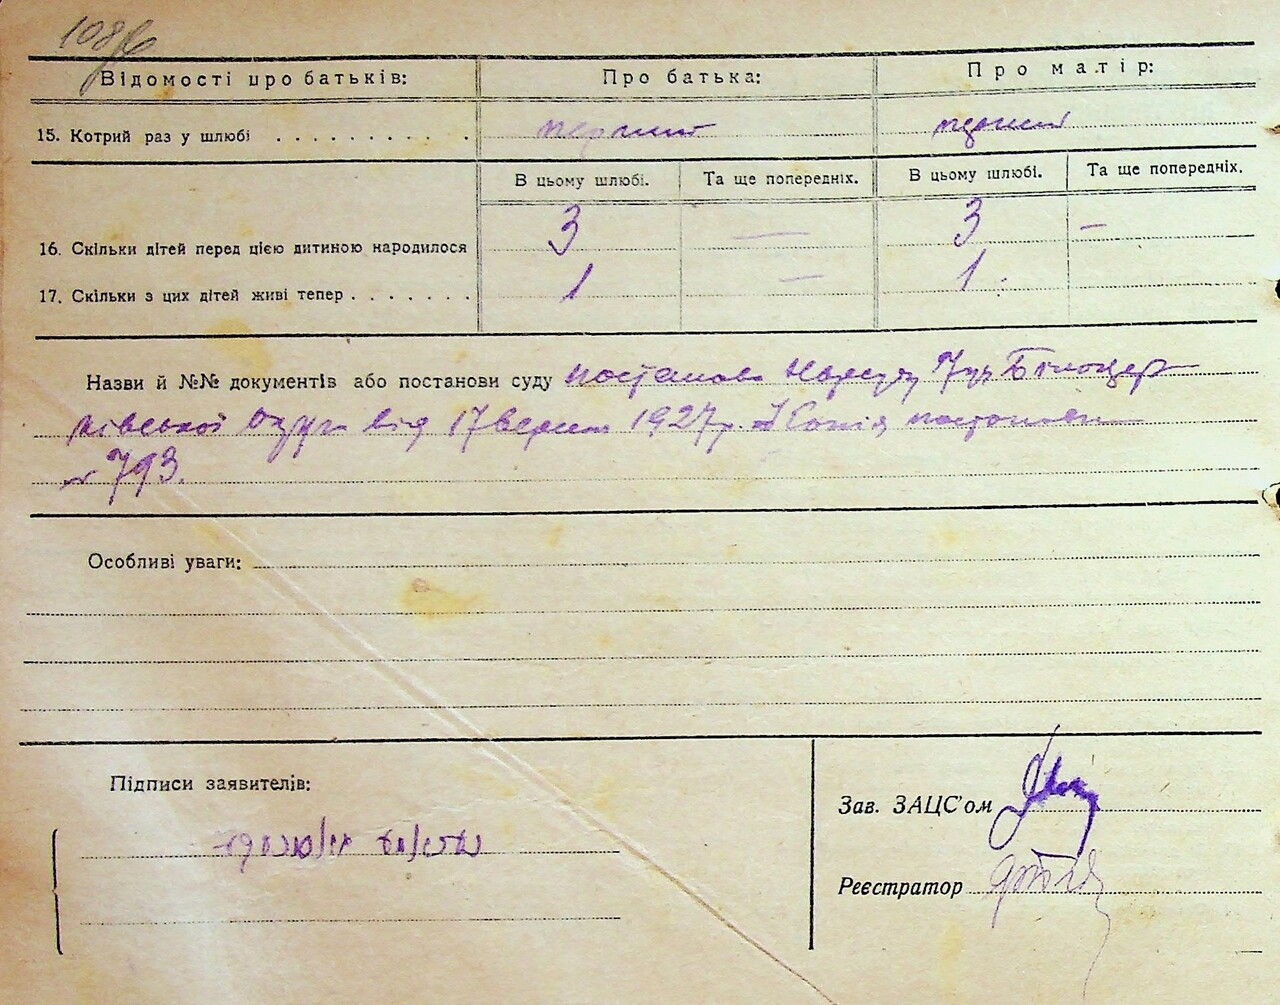 108
Відомості про батьків: Про батька: Про матір:
15. Котрий раз у шлюбі . . . . . . . . . . перший перший
В цьому шлюбі. Та ще попередніх. В цьому шлюбі. Та ще попередніх.
16. Скільки дітей перед цією дитиною народилося 3 — 3 —
17. Скільки з цих дітей живі тепер . . . . . . . 1 — 1
Назви й №№ документів або постанови суду постанова Нарсуду Білоцер-
ківської Округи від 17 вересня 1927 р. Копія постанови
№ 793.
Особливі уваги:
Підписи заявителів:
Зав. ЗАЦС'ом
Реєстратор